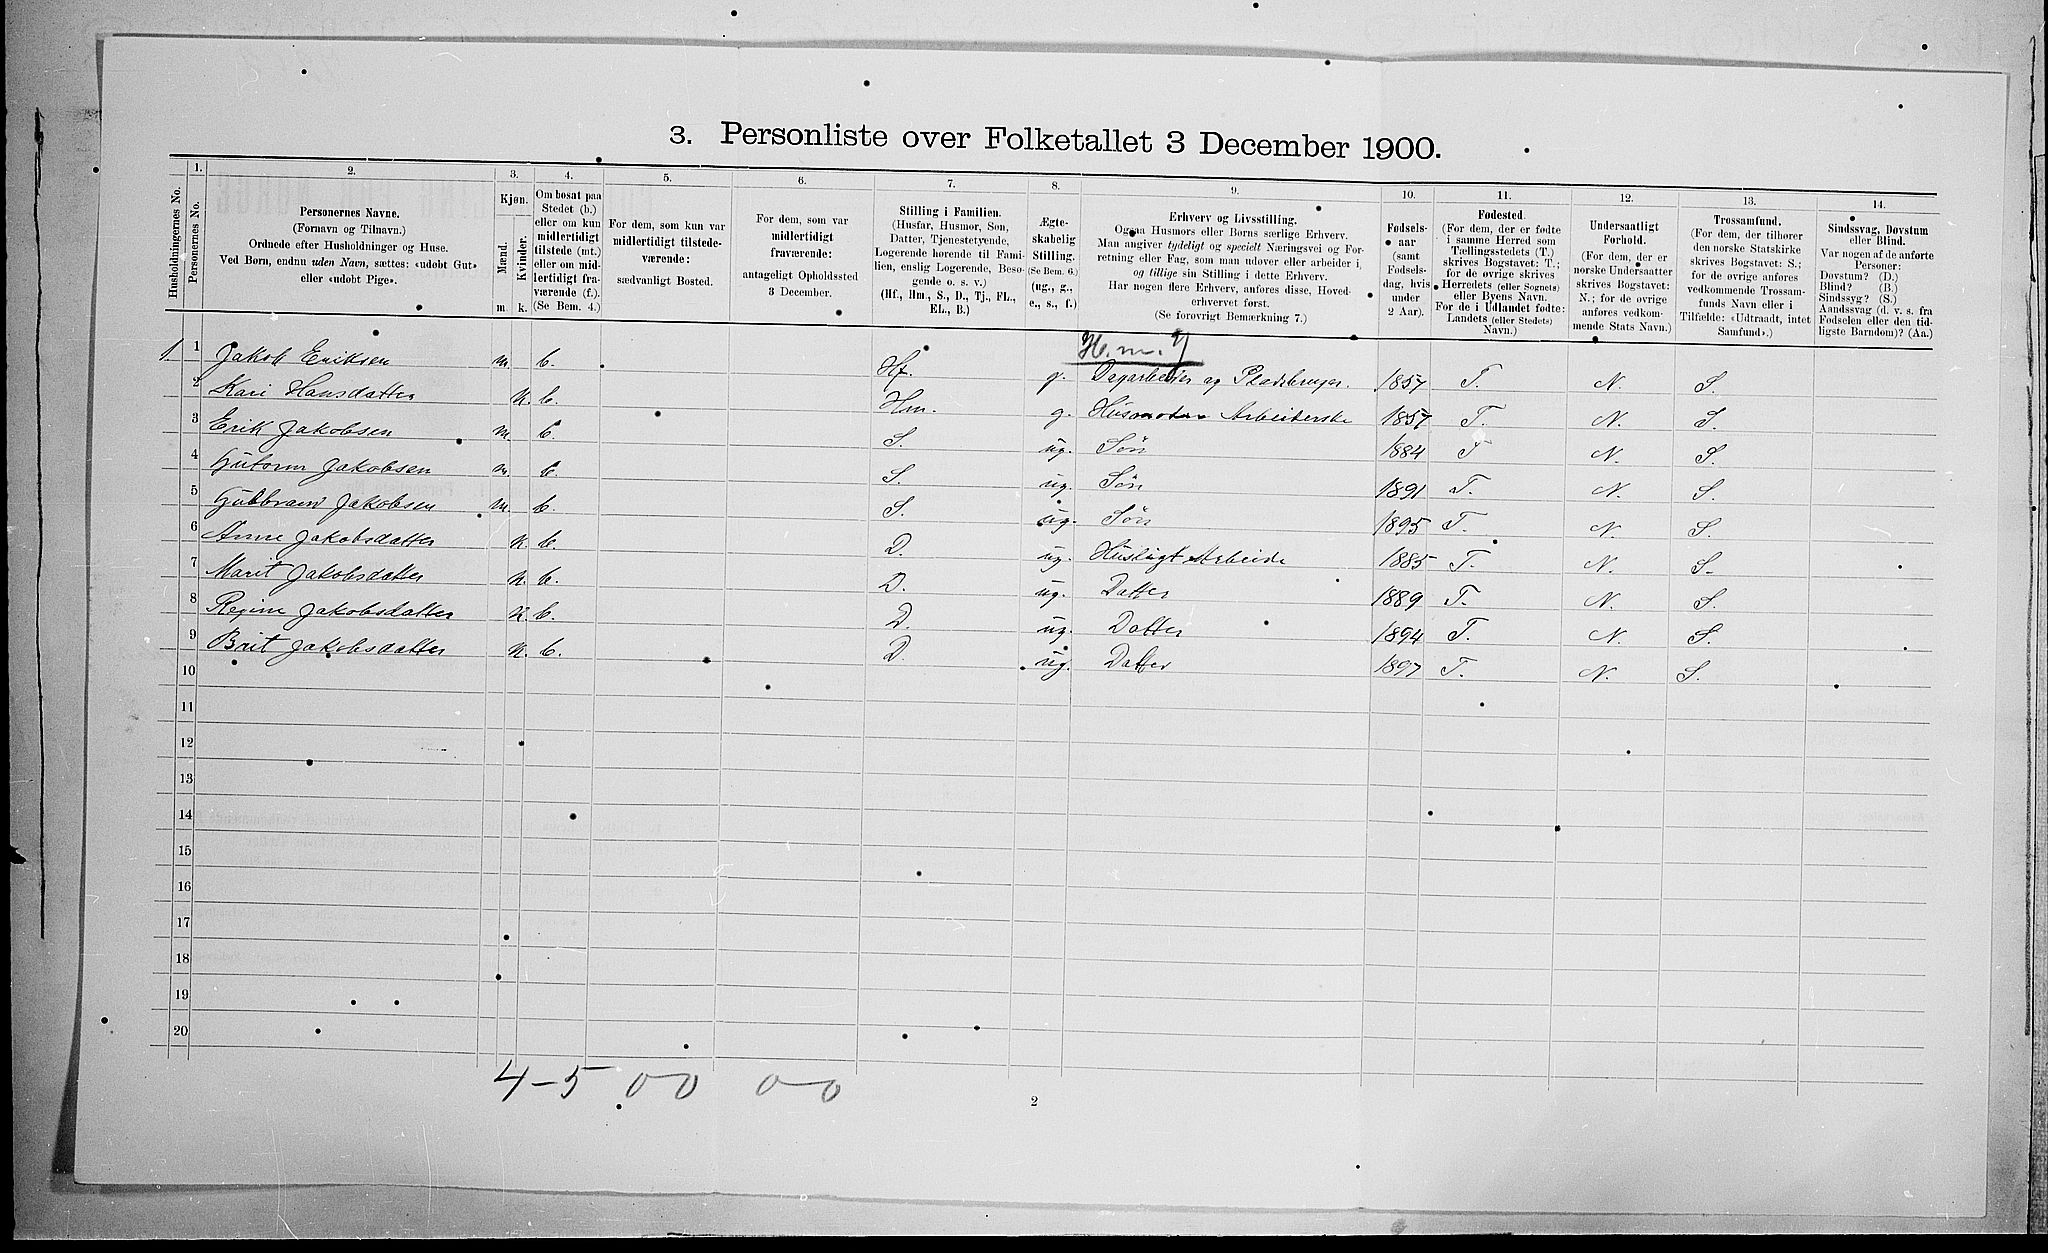 3. Personliste over Folketallet 3 December 1900.
Husholdningernes No.
1. Personernes No.
2. Personernes Navne.
(Fornavn og Tilnavn.)
Ordnede efter Husholdninger og Huse.
Ved Børn, endnu uden Navn, sættes: «udøbt Gut»
eller «udøbt Pige».
3. Kjøn.
Mænd. Kvinder.
m. k.
4. Om bosat paa
Stedet (b.)
eller om kun
midlertidigt
tilstede (mt.)
eller om mid-
lertidigt fra-
værende (f.).
(Se Bem. 4.)
5. For dem, som kun var
midlertidigt tilstede-
værende:
sædvanligt Bosted.
6. For dem, som var
midlertidigt
fraværende:
antageligt Opholdssted
3 December.
7. Stilling i Familien.
(Husfar, Husmor, Søn,
Datter, Tjenestetyende,
Logerende hørende til Fami-
lien, enslig Logerende, Besø-
gende o. s. v.)
(Hf., Hm., S., D., Tj., FL.,
EL., B.)
8. Ægte-
skabelig
Stilling.
(Se Bem. 6.)
(ug., g.,
e., s., f.)
9. Erhverv og Livsstilling.
Ogsaa Husmors eller Børns særlige Erhverv.
Man angiver tydeligt og specielt Næringsvei og For-
retning eller Fag, som man udøver eller arbeider i,
og tillige sin Stilling i dette Erhverv.
Har nogen flere Erhverv, anføres disse, Hoved-
erhvervet først.
(Se forøvrigt Bemærkning 7.)
10. Fødsels-
aar
(samt
Fødsels-
dag, hvis
under
2 Aar).
11. Fødested.
(For dem, der er fødte
i samme Herred som
Tællingsstedets (T.)
skrives Bogstavet: T.;
for de øvrige skrives
Herredets (eller Sognets)
eller Byens Navn.
For de i Udlandet fødte:
Landets (eller Stedets)
Navn.)
12. Undersaatligt
Forhold.
(For dem, der er
norske Undersaatter
skrives Bogstavet:
N.; for de øvrige
anføres vedkom-
mende Stats Navn.)
13. Trossamfund.
(For dem, der tilhører
den norske Statskirke
skrives Bogstavet: S.;
for de øvrige anføres
vedkommende Trossam-
funds Navn eller i
Tilfælde: «Udtraadt, intet
Samfund».)
14. Sindssvag, Døvstum
eller Blind.
Var nogen af de anførte
Personer:
Døvstum? (D.)
Blind? (B.)
Sindssyg? (S.)
Aandssvag (d. v. s. fra
Fødselen eller den tid-
ligste Barndom)? (Aa.)
H.m.
1. 1 Jakob Eriksen m. b. Hf. g. Dagarbeider og Pladsbruger. 1857 T. N. S.
2 Kari Hansdatter k. b. Hm. g. Husmoder Arbeiderske 1857 T. N. S.
3 Erik Jakobsen m. b. S. ug. Søn 1884 T N. S.
4 Gutorm Jakobsen m. b. S. ug. Søn 1891 T. N. S.
5 Gulbrand Jakobsen m. b. S. ug. Søn 1895 T. N. S.
6 Anne Jakobsdatter k. b. D. ug. Husligt Arbeide 1885 T. N. S.
7 Marit Jakobsdatter k. b. D. ug. Datter 1889 T. N. S.
8 Regine Jakobsdatter k. b. D. ug. Datter 1894 T. N. S.
9 Brit Jakobsdatter k. b. D. ug. Datter 1897 T. N. S.
10
11
12
13
14
15
16
17
18
19
20
4-5 0-0 0-0
2